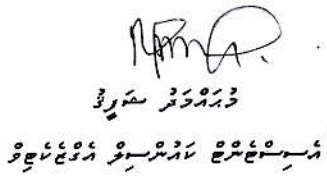 މުޙައްމަދު ޝަފީޤު
އެސިސްޓެންޓް ކައުންސިލް އެގްޒެކެޓިވް